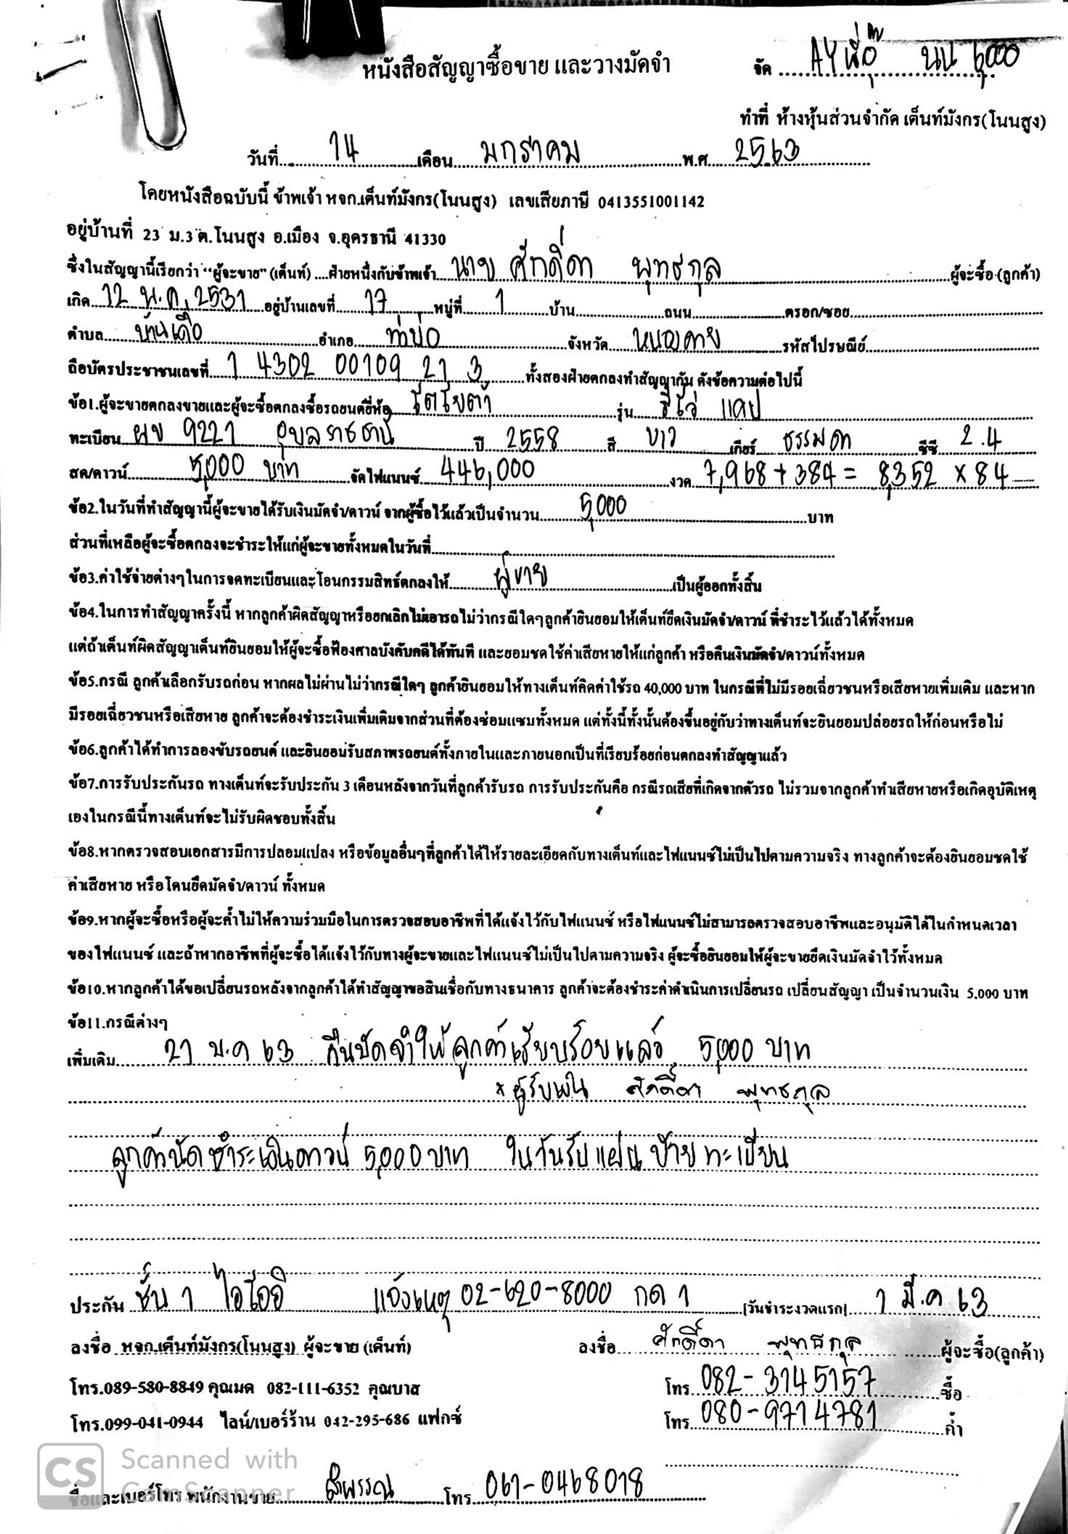 หนังสือสัญญาซื้อขาย และวางมัดจำ
จัด AY นน 6,000
ทำที่ ห้างหุ้นส่วนจำกัด เต็นท์มังกร(โนนสูง)
วันที่ 14 เดือน มกราคม พ.ศ 2563
โดยหนังสือฉบับนี้ ข้าพเจ้า หจก.เต็นท์มังกร(โนนสูง) เลขเสียภาษี 0413551001142
อยู่บ้านที่ 23 ม.3 ต.โนนสูง อ.เมือง จ.อุดรธานี 41330
ซึ่งในสัญญานี้เรียกว่า "ผู้จะขาย" (เต็นท์) ....ฝ่ายหนึ่งกับข้าพเจ้า นาย ศักดิ์ดา พุทธกุล ผู้จะซื้อ (ลูกค้า)
เกิด 12 พ.ค. 2531 อยู่บ้านเลขที่ 17 หมู่ที่ 1 บ้าน ถนน ตรอก/ซอย
ตำบล บ้านเดื่อ อำเภอ ท่าบ่อ จังหวัด หนองคาย รหัสไปรษณีย์
ถือบัตรประชาชนเลขที่ 1 4302 00109 21 3 ทั้งสองฝ่ายตกลงทำสัญญากัน ดังข้อความต่อไปนี้
ข้อ1.ผู้จะขายตกลงขายและผู้จะซื้อตกลงซื้อรถยนต์ยี่ห้อ โตโยต้า รุ่น รีโว่ แคป
ทะเบียน ผข 9221 อุบลราชธานี ปี 2558 สี ขาว เกียร์ ธรรมดา ซีซี 2.4
สด/ดาวน์ 5,000 บาท จัดไฟแนนซ์ 446,000 งวด 7,968 + 384 = 8,352 × 84
ข้อ2.ในวันที่ทำสัญญานี้ผู้จะขายได้รับเงินมัดจำ/ดาวน์ จากผู้ซื้อไว้แล้วเป็นจำนวน 5,000 บาท
ส่วนที่เหลือผู้จะซื้อตกลงจะชำระให้แก่ผู้จะขายทั้งหมดในวันที่
ข้อ3.ค่าใช้จ่ายต่างๆในการจดทะเบียนและโอนกรรมสิทธ์ตกลงให้ ผู้ขาย เป็นผู้ออกทั้งสิ้น
ข้อ4.ในการทำสัญญาครั้งนี้ หากลูกค้าผิดสัญญาหรือยกเลิกไม่เอารถไม่ว่ากรณีใดๆลูกค้ายินยอมให้เต็นท์ยึดเงินมัดจำ/ดาวน์ ที่ชำระไว้แล้วได้ทั้งหมด
แต่ถ้าเต็นท์ผิดสัญญาเต็นท์ยินยอมให้ผู้จะซื้อฟ้องศาลบังคับคดีได้ทันที และยอมชดใช้ค่าเสียหายให้แก่ลูกค้า หรือคืนเงินมัดจำ/ดาวน์ทั้งหมด
ข้อ5.กรณี ลูกค้าเลือกรับรถก่อน หากผลไม่ผ่านไม่ว่ากรณีใดๆ ลูกค้ายินยอมให้ทางเต็นท์คิดค่าใช้รถ 40,000 บาท ในกรณีที่ไม่มีรอยเฉี่ยวชนหรือเสียหายเพิ่มเติม และหาก
มีรอยเฉี่ยวชนหรือเสียหาย ลูกค้าจะต้องชำระเงินเพิ่มเติมจากส่วนที่ต้องซ่อมแซมทั้งหมด แต่ทั้งนี้ทั้งนั้นต้องขึ้นอยู่กับว่าทางเต็นท์จะยินยอมปล่อยรถให้ก่อนหรือไม่
ข้อ6.ลูกค้าได้ทำการลองขับรถยนต์ และยินยอมรับสภาพรถยนต์ทั้งภายในและภายนอกเป็นที่เรียบร้อยก่อนตกลงทำสัญญาแล้ว
ข้อ7.การรับประกันรถ ทางเต็นท์จะรับประกัน 3 เดือนหลังจากวันที่ลูกค้ารับรถ การรับประกันคือ กรณีรถเสียที่เกิดจากตัวรถ ไม่รวมจากลูกค้าทำเสียหายหรือเกิดอุบัติเหตุ
เองในกรณีนี้ทางเต็นท์จะไม่รับผิดชอบทั้งสิ้น
ข้อ8.หากตรวจสอบเอกสารมีการปลอมแปลง หรือข้อมูลอื่นๆที่ลูกค้าได้ให้รายละเอียดกับทางเต็นท์และไฟแนนซ์ไม่เป็นไปตามความจริง ทางลูกค้าจะต้องยินยอมชดใช้
ค่าเสียหาย หรือโดนยึดมัดจำ/ดาวน์ ทั้งหมด
ข้อ9.หากผู้จะซื้อหรือผู้จะค้ำไม่ให้ความร่วมมือในการตรวจสอบอาชีพที่ได้แจ้งไว้กับไฟแนนซ์ หรือไฟแนนซ์ไม่สามารถตรวจสอบอาชีพและอนุมัติได้ในกำหนดเวลา
ของไฟแนนซ์ และถ้าหากอาชีพที่ผู้จะซื้อได้แจ้งไว้กับทางผู้จะขายและไฟแนนซ์ไม่เป็นไปตามความจริง ผู้จะซื้อยินยอมให้ผู้จะขายยึดเงินมัดจำไว้ทั้งหมด
ข้อ10.หากลูกค้าได้ขอเปลี่ยนรถหลังจากลูกค้าได้ทำสัญญาขอสินเชื่อกับทางธนาคาร ลูกค้าจะต้องชำระค่าดำเนินการเปลี่ยนรถ เปลี่ยนสัญญา เป็นจำนวนเงิน 5,000 บาท
ข้อ11.กรณีต่างๆ
เพิ่มเติม 21 ม.ค 63 คืนมัดจำให้ลูกค้าเรียบร้อยแล้ว 5,000 บาท
× ผู้รับเงิน ศักดิ์ดา พุทธกุล
ลูกค้านัดชำระเงินดาวน์ 5,000 บาท ในวันรับแผ่นป้ายทะเบียน
ประกัน ชั้น 1 ไอโออิ แจ้งเหตุ 02-620-8000 กด 1 [วันชำระงวดแรก] 1 มี.ค 63
ลงชื่อ หจก.เต็นท์มังกร(โนนสูง) ผู้จะขาย (เต็นท์) ลงชื่อ ศักดิ์ดา พุทธกุล ผู้จะซื้อ(ลูกค้า)
โทร.089-580-8849 คุณมด 082-111-6352 คุณบาส โทร 082-3145157 ซื้อ
โทร.099-041-0944 ไลน์/เบอร์ร้าน 042-295-686 แฟกซ์ โทร 080-9714781 ค้ำ
CS Scanned with
CamScanner
ชื่อและเบอร์โทร พนักงานขาย โทร 061-0468018